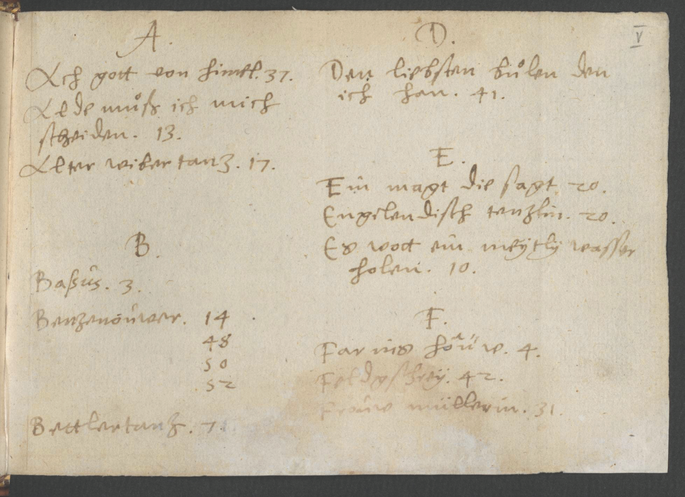 A.
Ach gott von himel. 37.
Alde muͦß ich mich
scheiden. 13.
Alter wiber tantz. 17.
B.
Baßus. 3.
Bentzenouwer. 14
48
50
52
Bettlertantz. 7
D.
V
Den liebsten buͦlen den
ich han. 41.
E.
Ein magt die sagt. 20.
Engelendisch tentzlin. 20.
Es wott ein meytly wasser
holen. 10.
F.
Far ins höüw. 4.
Feldgschrey. 42.
Frouw müllerin. 31.